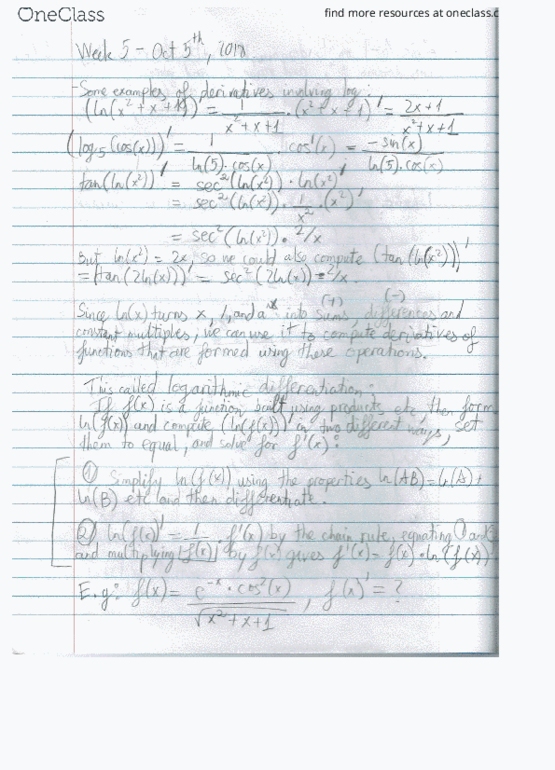 OneClass
find more resources at oneclass.c
Week 5 - Oct 5th, 2018
- Some examples of derivatives involving log:
(ln(x²+x+1))' = 1/(x²+x+1) · (x²+x+1)' = (2x+1)/(x²+x+1)
(log₅(cos(x)))' = 1/(ln(5)·cos(x)) · cos'(x) = -sin(x)/(ln(5)·cos(x))
tan(ln(x²))' = sec²(ln(x²)) · ln(x²)'
= sec²(ln(x²)) · 1/x² · (x²)'
= sec²(ln(x²)) · 2/x
But ln(x²) = 2x, so we could also compute (tan(ln(x²)))'
= (tan(2ln(x)))' = sec²(2ln(x)) · 2/x.
(+) (-)
Since ln(x) turns x, /, and aˣ into sums, differences and
constant multiples, we can use it to compute derivatives of
functions that are formed using these operations.
This called logarithmic differentiation.
If f(x) is a function built using products etc, then form
ln(f(x)) and compute (ln(f(x)))' in two different ways, set
them to equal, and solve for f'(x):
① Simplify ln(f(x)) using the properties ln(AB)=ln(A)+
ln(B) etc and then differentiate.
② ln(f(x))' = 1/f(x) · f'(x) by the chain rule, equating ① and ②
and multiplying by f(x) gives f'(x) = f(x)·ln(f(x))'
E.g: f(x) = (e⁻ˣ · cos²(x))/√(x²+x+1), f(x)' = ?